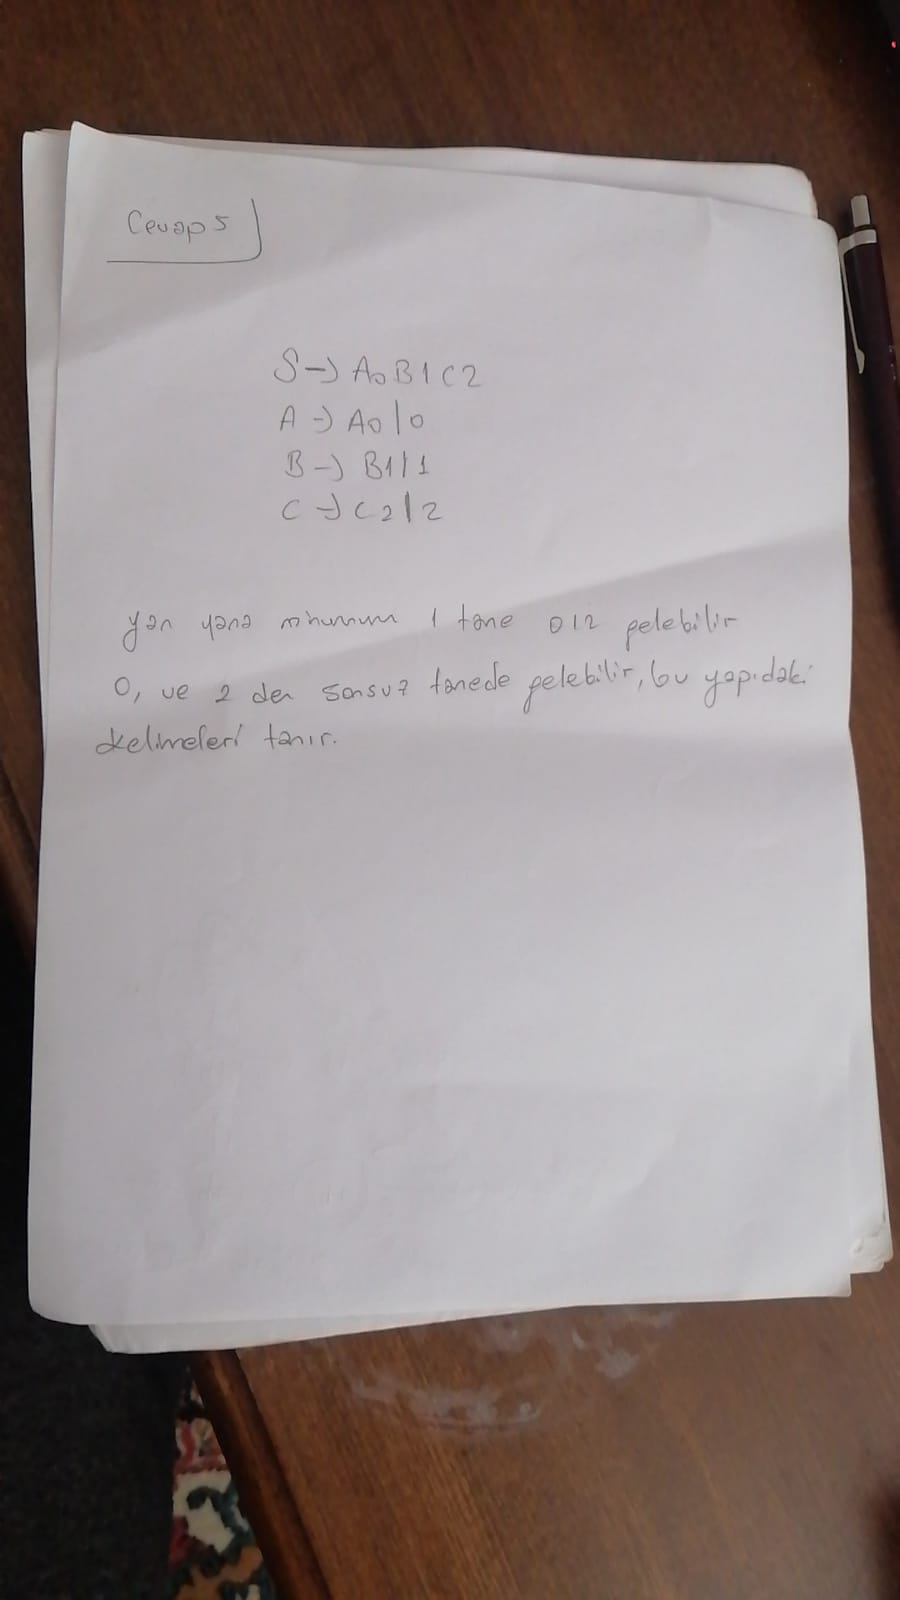 Cevap 5
S → A0B1C2
A → A0|0
B → B1|1
C → C2|2
yan yana minumum 1 tane 012 gelebilir
0, ve 2 den sonsuz tanede gelebilir, bu yapıdaki
kelimeleri tanır.